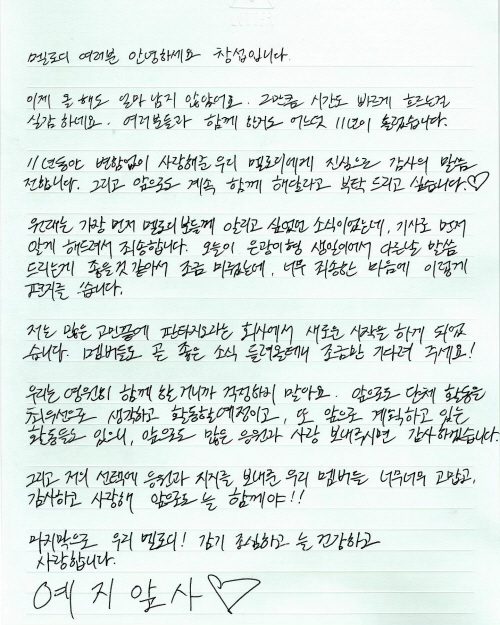 멜로디 여러분 안녕하세요 창섭입니다.
이제 올 해도 얼마 남지 않았어요. 그만큼 시간도 빠르게 흐르는걸
실감 하네요. 여러분들과 함께 한지도 어느덧 11년이 흘렀습니다.
11년동안 변함없이 사랑해준 우리 멜로디에게 진심으로 감사의 말씀
전합니다. 그리고 앞으로도 계속 함께 해달라고 부탁 드리고 싶습니다.♡
원래는 가장 먼저 멜로디 분들께 알리고 싶었던 소식이었는데, 기사로 먼저
알게 해드려서 죄송합니다. 오늘이 은광이형 생일이어서 다른날 말씀
드리는게 좋을것 같아서 조금 미뤘는데, 너무 죄송한 마음에 이렇게
편지를 씁니다.
저는 많은 고민끝에 판타지오라는 회사에서 새로운 시작을 하게 되었
습니다. 멤버들도 곧 좋은 소식 들려올테니 조금만 기다려 주세요!
우리는 영원히 함께 할 거니까 걱정하지 말아요. 앞으로도 단체 활동을
최우선으로 생각하고 활동할예정이고, 또 앞으로 계획하고 있는
활동들도 있으니, 앞으로도 많은 응원과 사랑 보내주시면 감사하겠습니다.
그리고 저의 선택에 응원과 지지를 보내준 우리 멤버들 너무너무 고맙고,
감사하고 사랑해 앞으로도 늘 함께야!!
마지막으로 우리 멜로디! 감기 조심하고 늘 건강하고
사랑합니다.
예지앞사♡